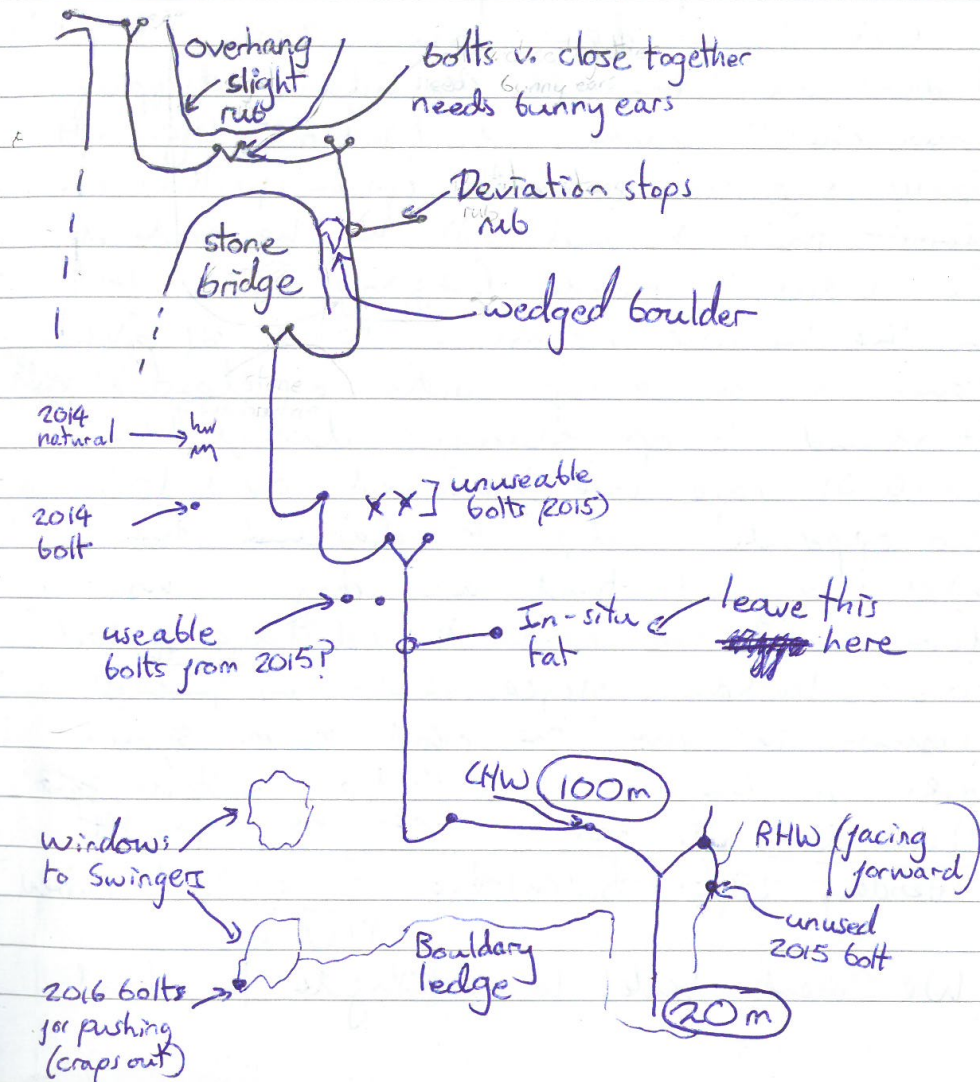 overhang
slight
rub
bolts v. close together
needs bunny ears
Deviation stops
rub
stone
bridge
wedged boulder
2014
natural
2014
bolt
unuseable
bolts (2015)
useable
bolts from 2015?
In-situ
tat
leave this
here
LHW 100m
RHW (facing
forward)
unused
2015 bolt
windows
to Swingers
Bouldary
ledge
20m
2016 bolts
for pushing
(craps out)